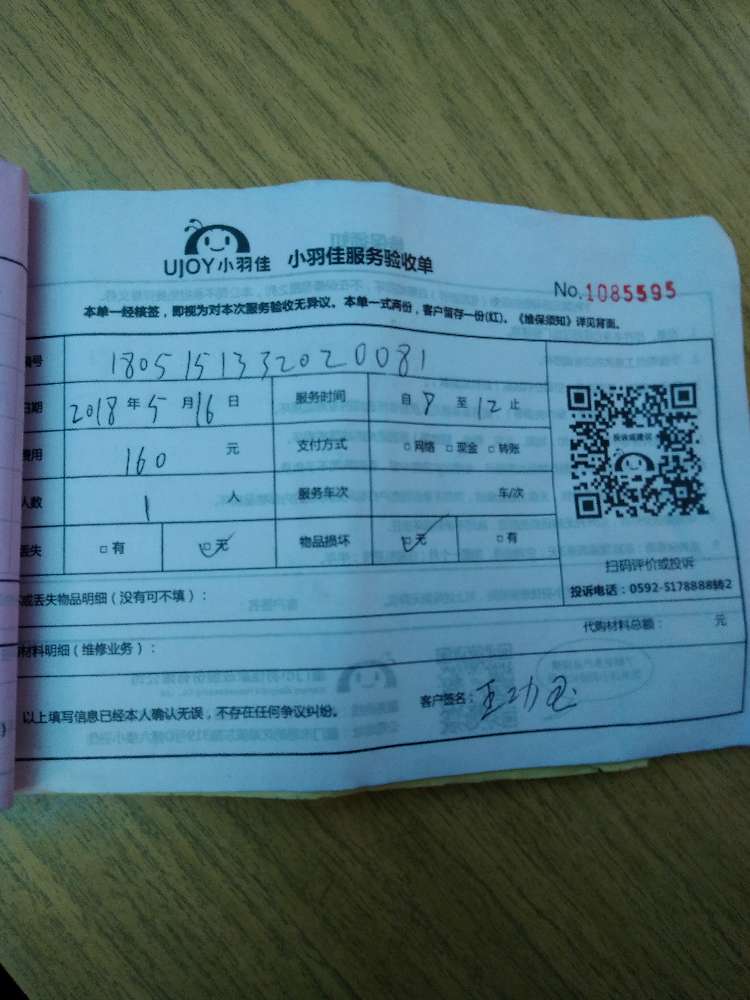 UJOY小羽佳 小羽佳服务验收单
No.1085595
本单一经核签，即视为对本次服务验收无异议。本单一式两份，客户留存一份(红)。《维保须知》详见背面。
编号 1805151332020081
日期 2018年5月16日 服务时间 自8至12止
费用 160 元 支付方式 □网络 □现金 □转账
人数 1 人 服务车次 车/次
丢失 □有 ☑无 物品损坏 ☑无 □有
投诉或建议
扫码评价或投诉
投诉电话：0592-5178888转2
坏或丢失物品明细（没有可不填）：
代购材料总额： 元
材料明细（维修业务）：
以上填写信息已经本人确认无误，不存在任何争议纠纷。
客户签名：王功